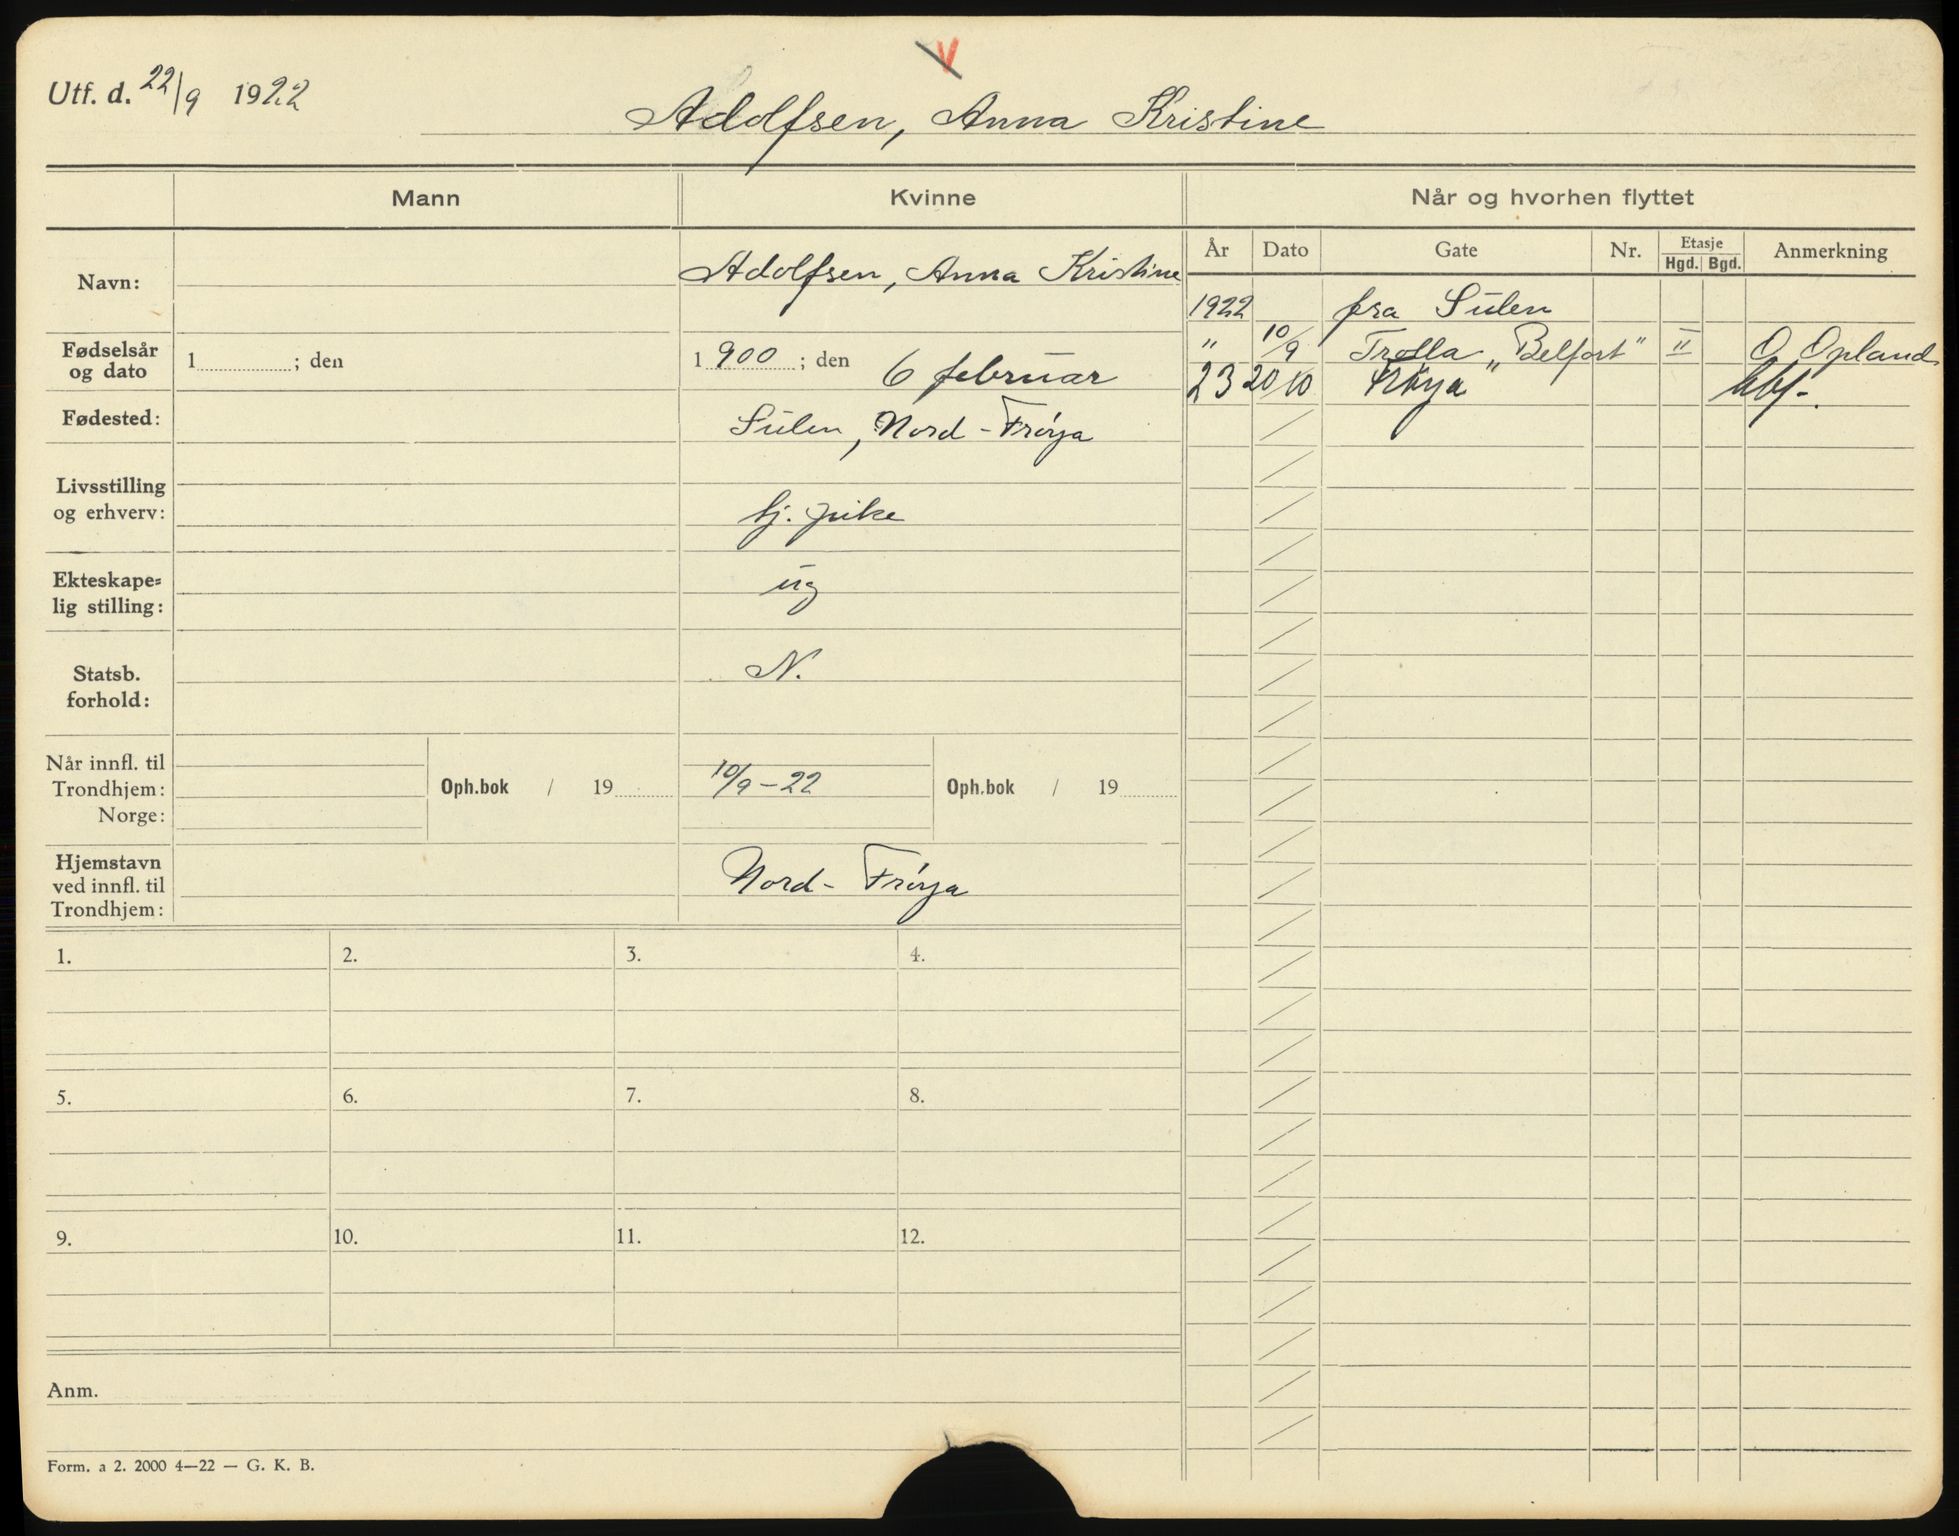 V
Utf. d. 22/9 1922
Adolfsen, Anna Kristine
Mann Kvinne Når og hvorhen flyttet
År Dato Gate Nr. Etasje Hgd. Bgd. Anmerkning
Navn: Adolfsen, Anna Kristine
1922 fra Sulen
" 10/9 Trolla „Belfort" II O Opland
Fødselsår og dato 1 ; den 1900 ; den 6 februar
23 20/10 Frøya
Fødested: Sulen, Nord-Frøya
Livsstilling
og erhverv: tj. pike
Ekteskape=
lig stilling: ug
Statsb.
forhold: N.
Når innfl. til
Trondhjem: Oph.bok / 19 10/9-22 Oph.bok / 19
Norge:
Hjemstavn
ved innfl. til Nord-Frøya
Trondhjem:
1. 2. 3. 4.
5. 6. 7. 8.
9. 10. 11. 12.
Anm.
Form. a 2. 2000 4—22 — G. K. B.